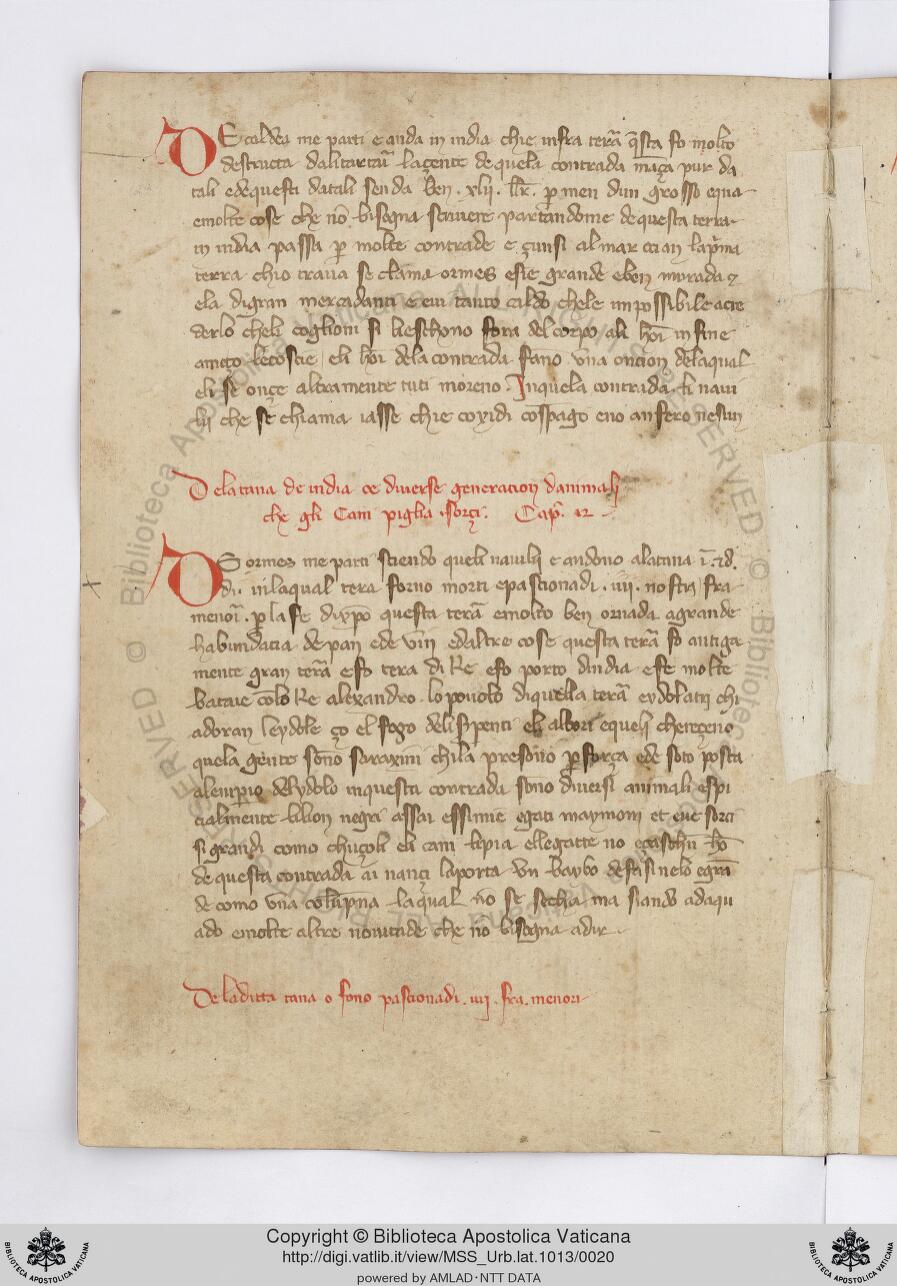 DE caldea me parti e anda in india chie infra terā q̄sta fo molto
destructa dalitartari laçente de quela contrada māça pur da
tali e de questi datali sen da ben . xlii . lbr̄ . ꝑ men dun grosso e qua
e molte cose che nō bisegna scrivere partandome de questa terra
in india passa ꝑ molte contrade e çunsi al mar ocian lap̄ma
terra chio trova se clama ormes e sie grande e ben murada ⁊
ela digran mercadanti e cui tanto caldo chele impossibile acre
derlo cheli coglioni si lieschono fora del corpo ali hōi in fine
ameço le cosse eli hōi dela contrada fano una oncion delaqual
eli se onçe altramente tuti moreno . Inquela contrada li navi
lij che se chiama iasse chie coxidi co spago e no an fero nesun
Dela tana de india ⁊ de diverse generacion danimalj
che gli cani piglia . sorçi . Cap̄ . 12
DE ormes me parti sciendo queli navilij e andono ala tana ī . 28 .
di . in laqual tera forno morti e pascionadi . iiij . nostrj fra
menorī . ꝑ la fe dixp̄o questa terā e molto ben ornada a grande
habundacia de pan e de vin e daltre cose questa terā fo antiga
mente gran terā e fo tera di Re e fo porto dindia e fe molte
bataie cōlo Re alexandro . lo povolo diquella terā eydolatrj chi
adoran leydole ço el fogo deli sꝑenti eli albori e quelj che reçeno
quela gente sōno saraxini chi la presōno ꝑ força e de soto posta
alemꝑio deldolo in questa contrada sōno diversi animali espi
cialmente lilion negri assai e ssimie e gati maymoni et eve sorci
si grandi como chuçoli eli cani li pia e llegatte no
de questa contrada ai nançi laporta un baybo de fissi nelo e grā
de como una colūpna laqual nō se secha ma siando adaqu
ado e molte altre novitade che nō bisegna a dir .
De la ditta tana o fono pascionadi . iiij . fra . menori
Copyright © Biblioteca Apostolica Vaticana
http://digi.vatlib.it/view/MSS_Urb.lat.1013/0020
powered by AMLAD · NTT DATA